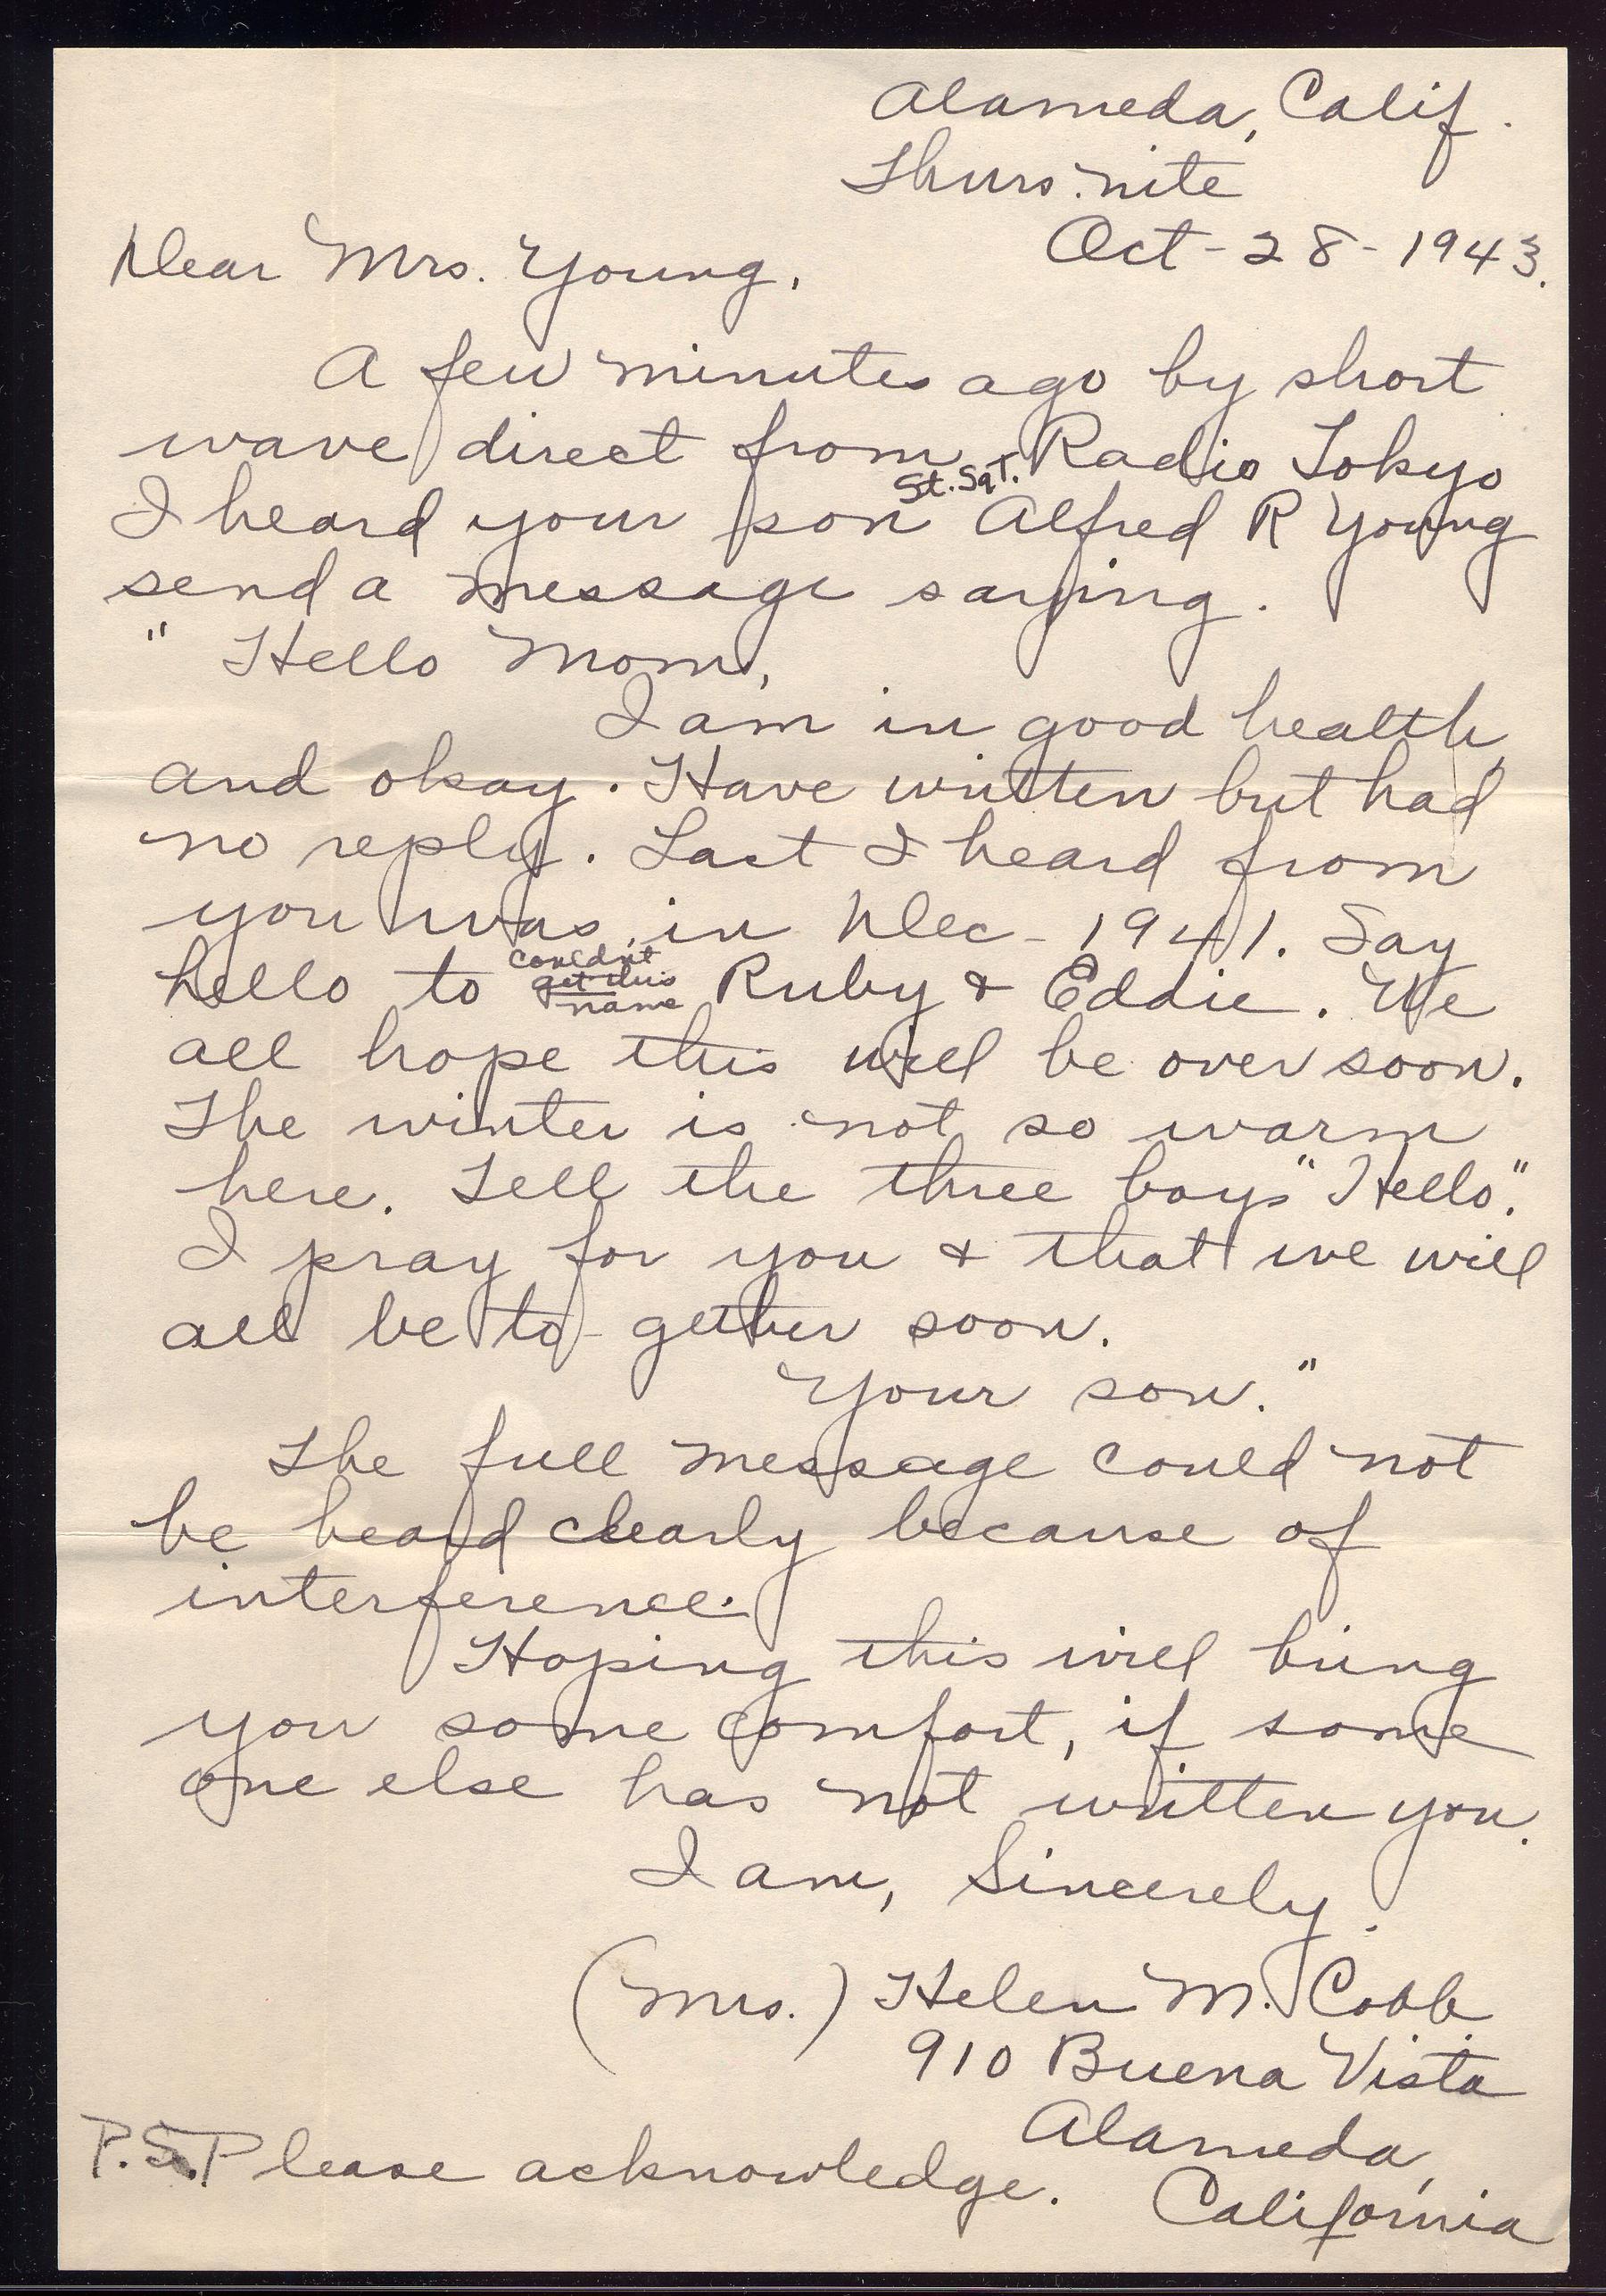 Alameda, Calif.
Thurs. nite
Oct-28-1943.
Dear Mrs. Young,
A few minutes ago by short
wave direct from Radio Tokyo
St. Sgt.
I heard your son Alfred R Young
send a message saying.
" Hello Mom,
I am in good health,
and okay. Have written but had
no reply. Last I heard from
you was in Dec-1941. Say
couldn't
get this
name
hello to Ruby & Eddie. We
all hope this will be over soon.
The winter is not so warm
here. Tell the three boys "Hello".
I pray for you & that we will
all be to-gether soon.
Your son."
The full message could not
be heard clearly because of
interference.
Hoping this will bring
you some comfort, if some
one else has not written you.
I am, Sincerely.
(Mrs.) Helen M. Cobb.
910 Buena Vista
Alameda,
P.S. Please acknowledge.
California